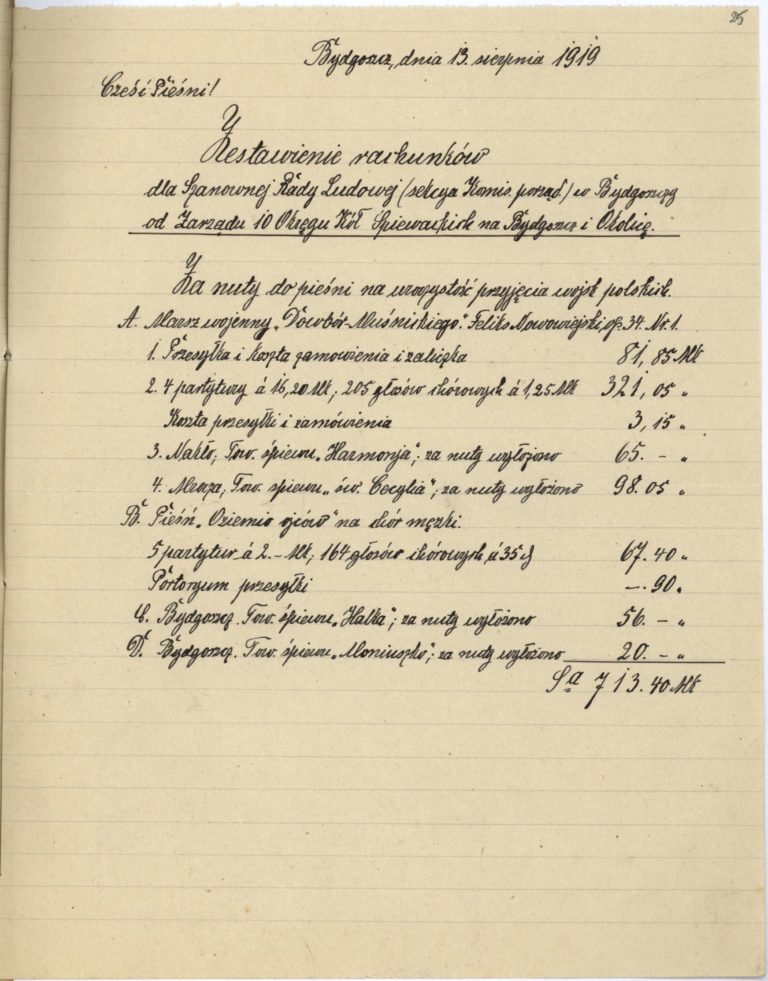 25
Bydgoszcz, dnia 13. sierpnia 1919
Cześć Pieśni!
Zestawienie rachunków
dla Szanownej Rady Ludowej (sekcya Komis. porząd.) w Bydgoszczy
od Zarządu 10 Okręgu Kół Śpiewackich na Bydgoszcz i Okolicę.
Za nuty do pieśni na uroczystość przyjęcia wojsk polskich.
A. Marsz wojenny „Dowbór-Muśnickiego". Feliks Nowowiejski, op. 34. Nr. 1.
1. Przesyłka i koszta zamówienia i zaliczka 81,85 Mk
2. 4 partytury á 16,20 Mk; 205 głosów chórowych á 1,25 Mk 321,05 „
Koszta przesyłki i zamówienia 3,15 „
3. Nakło; Tow. śpiewu „Harmonja"; za nuty wyłożono 65. – „
4. Mrocza; Tow. śpiewu „św. Cecylia"; za nuty wyłożono 98.05 „
B. Pieśń „O ziemio ojców" na chór męzki.
5 partytur á 2.– Mk; 164 głosów chórowych á 35 ₰ 67.40 „
Portoryum przesyłki –. 90 „
C. Bydgoszcz. Tow. śpiewu „Halka"; za nuty wyłożono 56. – „
D. Bydgoszcz. Tow. śpiewu „Moniuszko"; za nuty wyłożono 20. – „
Sa 713.40 Mk